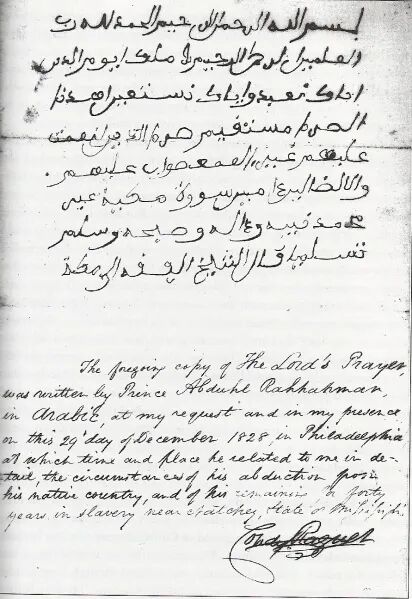 بسم الله الرحمن الرحيم الحمد لله رب
العلمين الرحمن الرحيم ملك يوم الدين
اياك نعبد واياك نستعين اهدنا
الصراط مستقيم صراط الذين انعمت
عليهم غير المغضوب عليهم
سورة مكية
وصحبه وسلم
تسليما قال الشيخ الفقه
The foregoin copy of The Lord's Prayer,
was written by Prince Abduhl Rahhahman,
in Arabic, at my request and in my presence
on this 29 day of December 1828, in Philadelphia
at which time and place he related to me in de-
tail the circumstances of his abduction from
his native country, and of his remaining forty
years in slavery near Natchez, State of Mississippi.
Condy Raguet